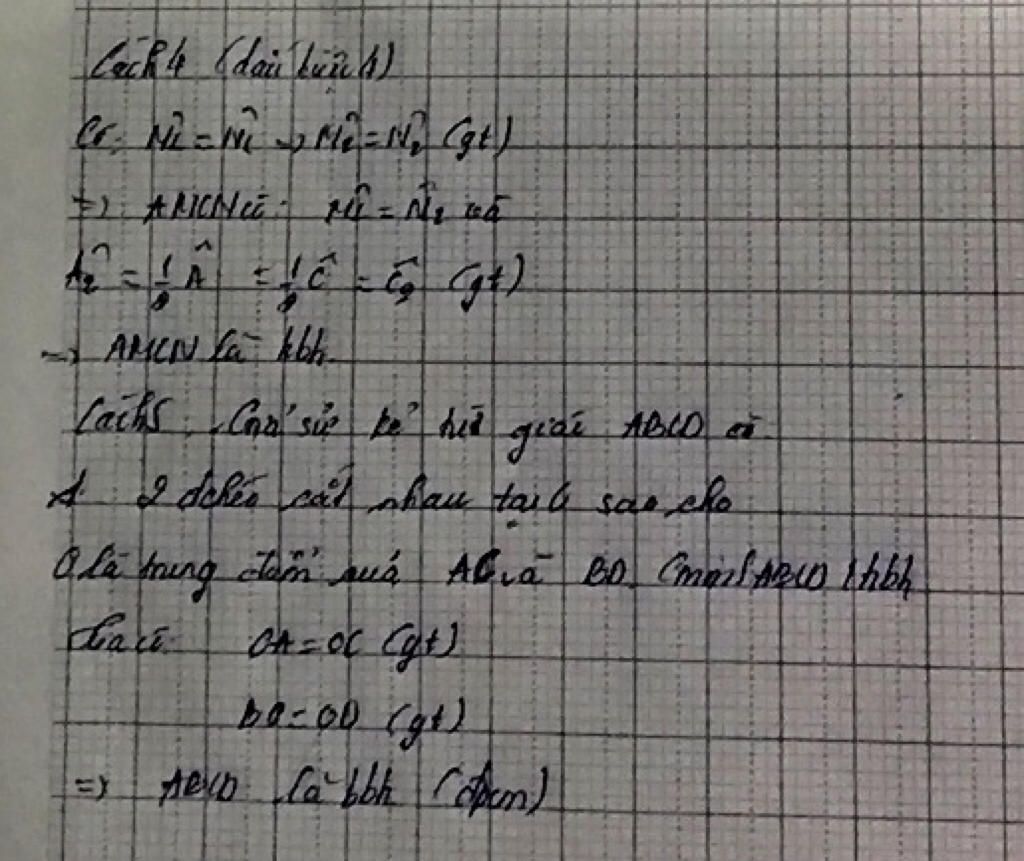 Cách 4 (dấu hiệu 4)
Có: M̂₁ = N̂₁ → M̂₂ = N̂₂ (gt)
=> AMCN có: M̂₂ = N̂₂ và
Â₂ = 1/2 Â = 1/2 Ĉ = Ĉ₂ (gt)
=> AMCN là hbh
Cách 5: Giả sử kẻ tứ giác ABCD có
2 đchéo cắt nhau tại O sao cho
O là trung điểm của AC và BD. Cminh ABCD hbh
Ta có: OA = OC (gt)
BO = OD (gt)
=> ABCD là hbh (đpcm)